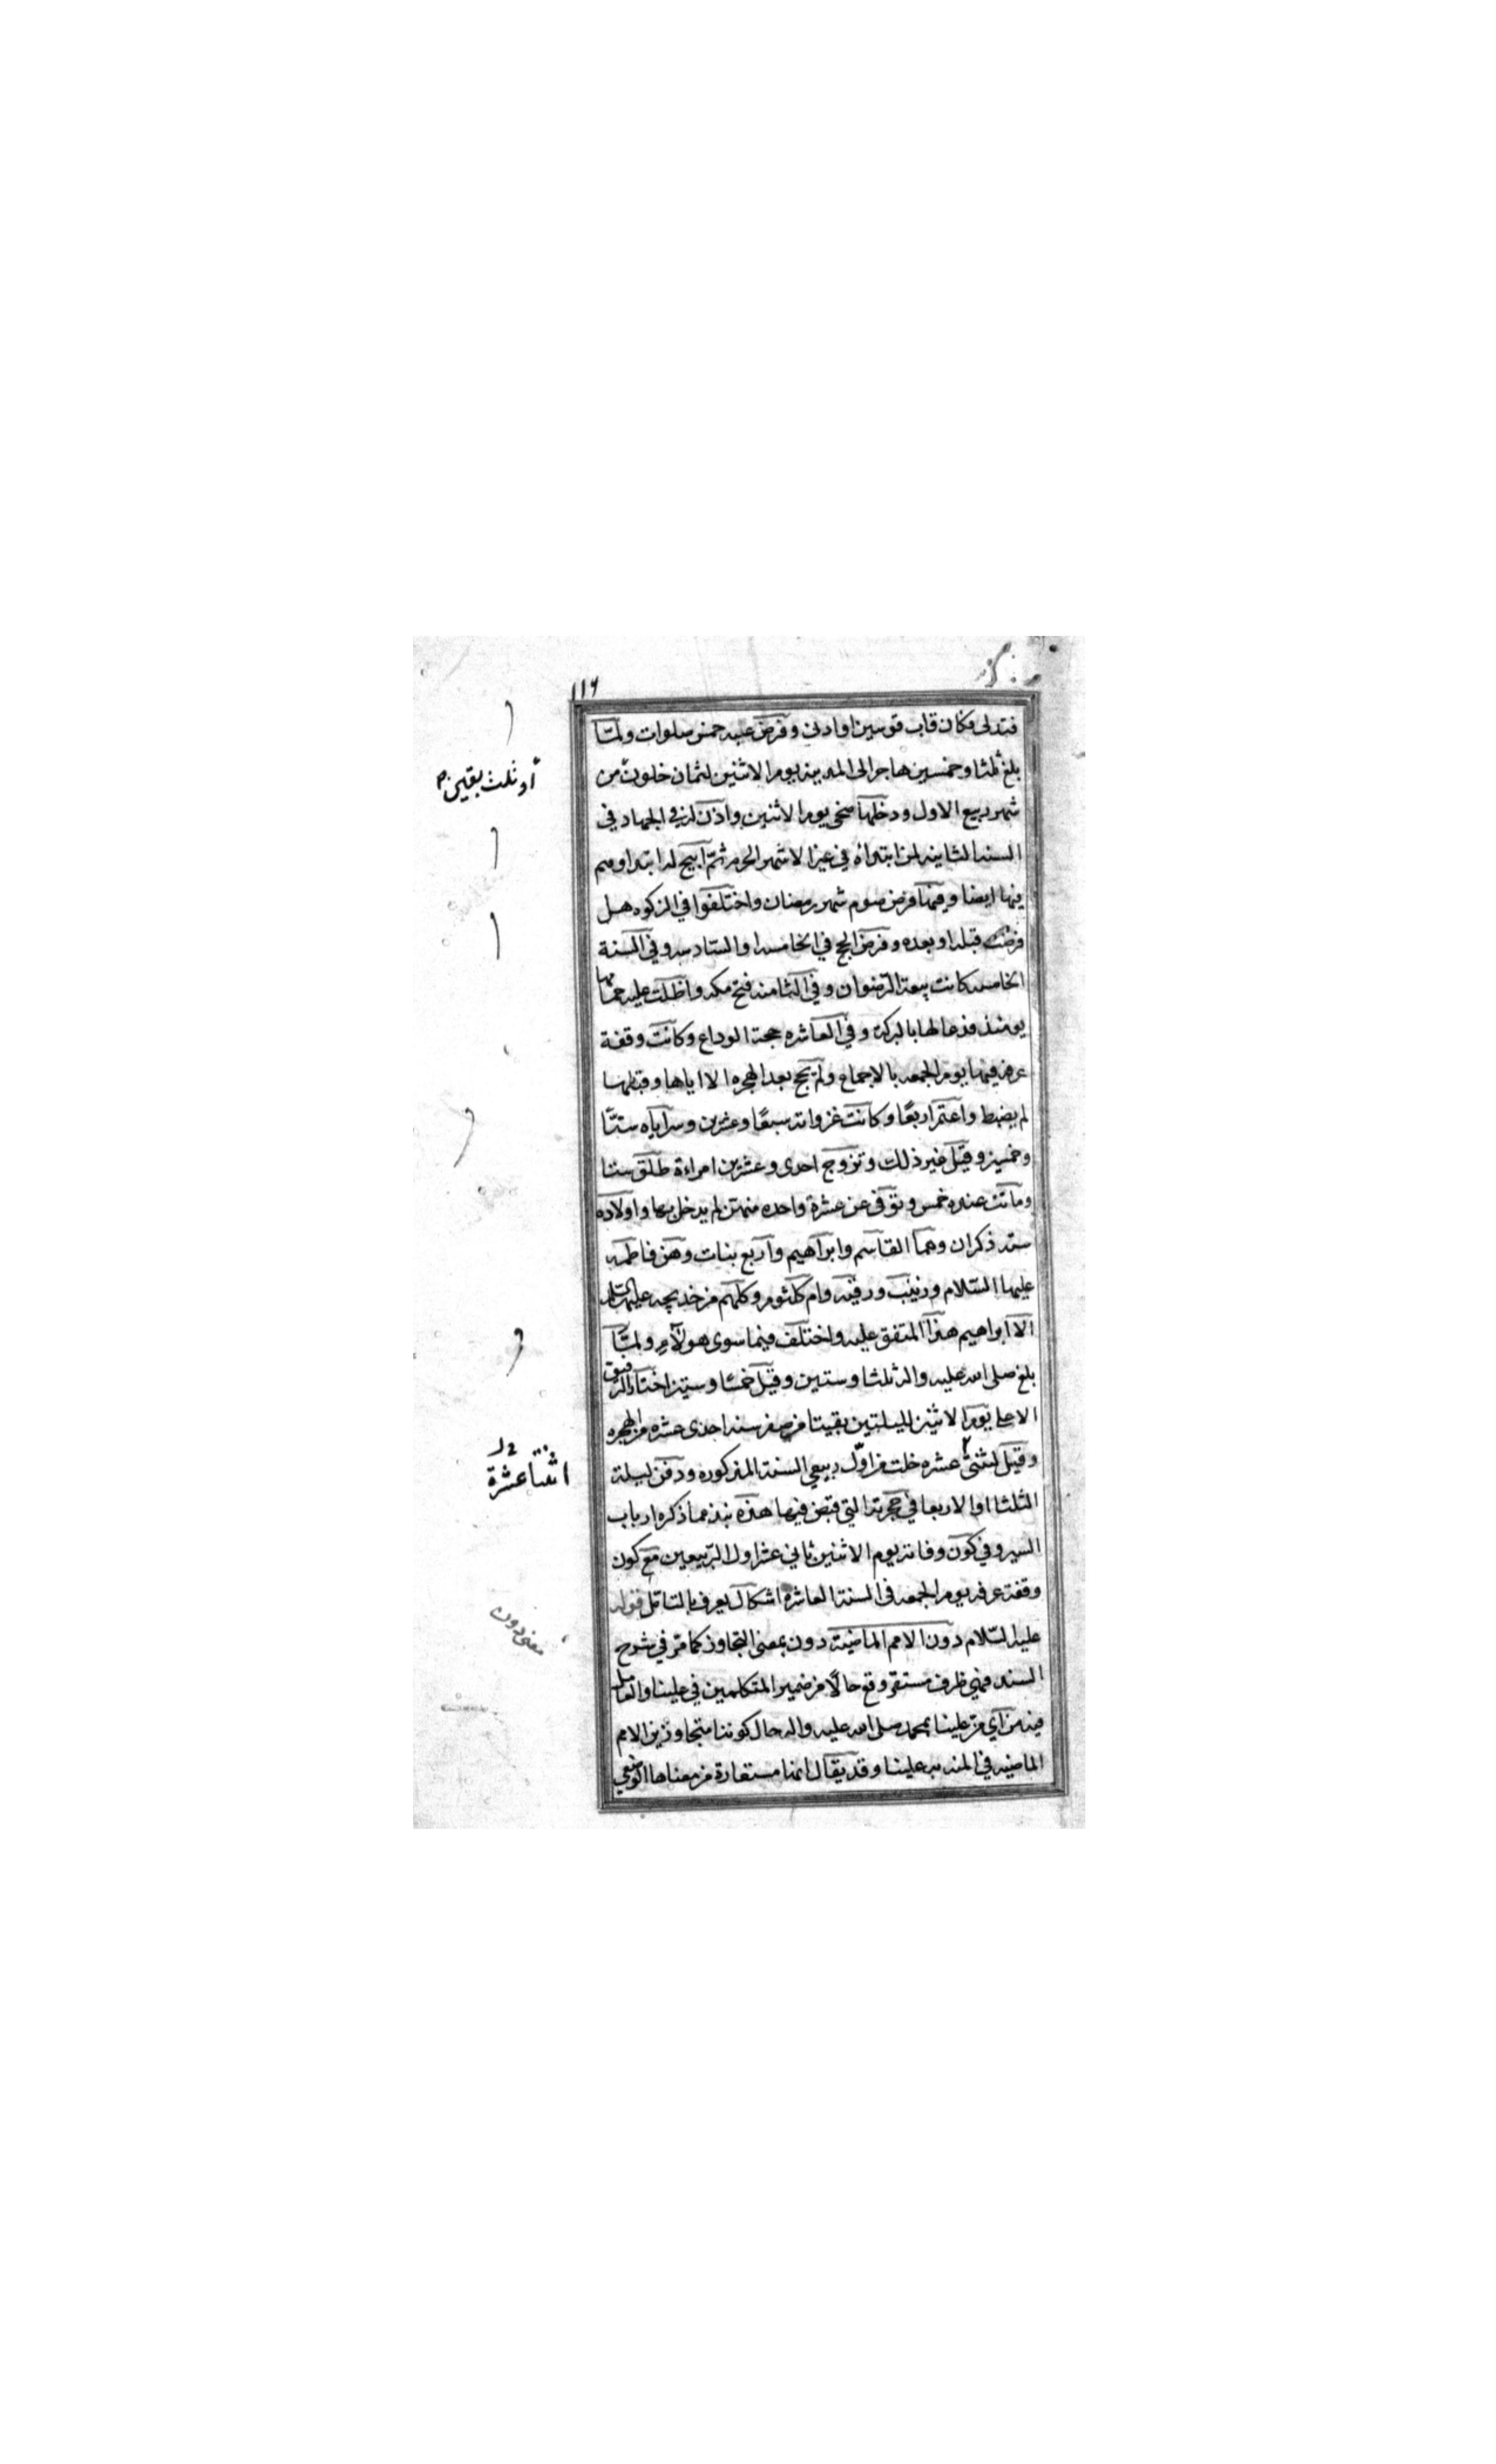 ١١٦
فتدلى فكان قاب قوسين او ادنى وفرض عليه خمس صلوات ولمّا
بلغ ثلثا وخمسين هاجر الى المدينه يوم الاثنين لثمان خلون من
او ثلث بقين
شهر ربيع الاول ودخلها ضحى يوم الاثنين واذن له في الجهاد في
السنه الثانيه لمن ابتداه في غير الاشهر الحرم ثمّ ابيح له ابتداوهم
فيها ايضا وفيها فرض صوم شهر رمضان واختلفوا في الزكوه هل
فرضت قبله او بعده وفرض الحج في الخامسه او السادسه وفي السنة
الخامسه كانت بيعة الرّضوان وفي الثامنه فتح مكه واظلت عليه حمامها
يومئذ فدعا لها بالبركة وفي العاشره حجة الوداع وكانت وقفة
عرفه فيها يوم الجمعه بالاجماع ولم يحج بعد الهجره الا اياها وقبلها
لم يضبط واعتمر اربعًا وكانت غزواته سبعًا وعشرين وسراياه ستّا
وخمسين وقيل غير ذلك وتزوج احدى وعشرين امراءة طلق ستا
وماتت عنده خمس وتوفى عن عشرة واحده منهن لم يدخل بها واولاده
سته ذكران وهما القاسم وابراهيم واربع بنات وهن فاطمه
عليها السّلام وزينب ورقيه وام كلثوم وكلهم من خديجه عليها السّلام
الا ابراهيم هذا المتفق عليه واختلف فيما سوى هولآء ولمّا
بلغ صلى الله عليه واله ثلثا وستين وقيل خمسًا وستين اختار الرفيق
الاعلى يوم الاثنين لليلتين بقيتا من صفر سنه احدى عشره من الهجره
وقيل لثنتى عشره خلت من اوّل ربيعي السنة المذكوره ودفن ليلة
اثنتا عشرة
الثلثا او الاربعا في حجرته التي قبض فيها هذه نبذ مما ذكره ارباب
السير وفي كون وفاته يوم الاثنين ثاني عشر اول الرّبيعين مع كون
وقفة عرفه يوم الجمعه في السنة العاشره اشكال يعرف بالتامّل قوله
عليه السّلام دون الامم الماضية دون بمعنى التجاوز كما مرّ في شرح
معنى دون
السند فهي ظرف مستقر وقع حالًا من ضمير المتكلمين في علينا والعامل
فيه من اي من علينا بمحمد صلى الله عليه واله حال كوننا متجاوزين الامم
الماضيه في المن به علينا وقد يقال انها مستعارة من معناها الوضعي